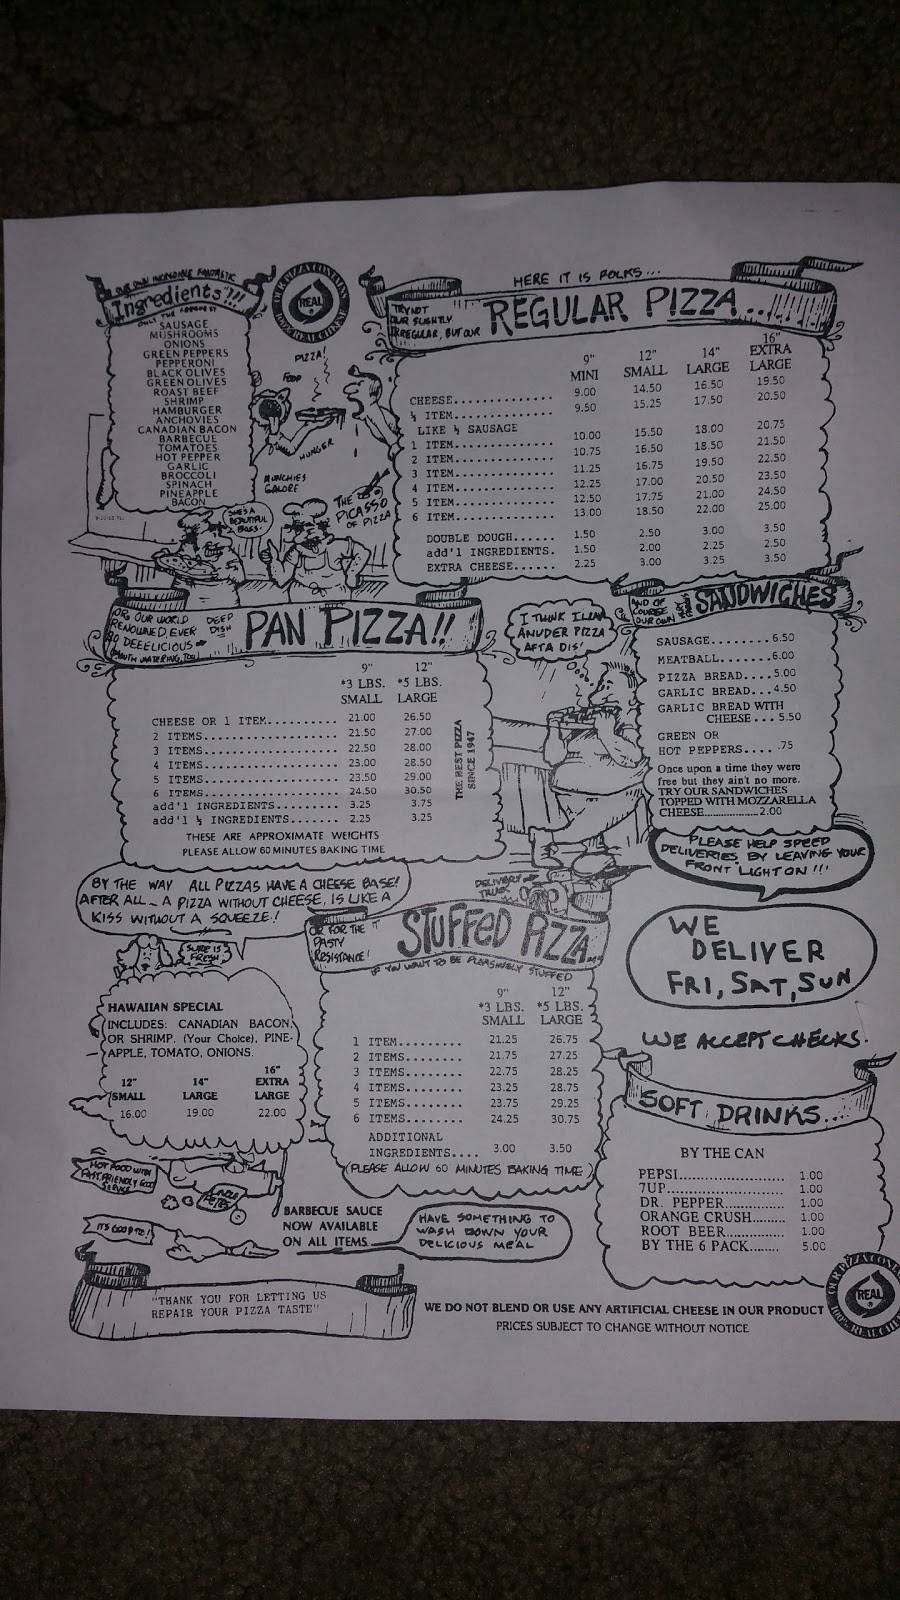 OUR OWN INCREDIBLE FANTASTIC
"Ingredients"!!!
ONLY THE
SAUSAGE
MUSHROOMS
ONIONS
GREEN PEPPERS
PEPPERONI
BLACK OLIVES
GREEN OLIVES
ROAST BEEF
SHRIMP
HAMBURGER
ANCHOVIES
CANADIAN BACON
BARBECUE
TOMATOES
HOT PEPPER
GARLIC
BROCCOLI
SPINACH
PINEAPPLE
BACON
REAL
100% REAL CHEESE
PIZZA!
FOOD
HUNGER
MUNCHIES
GALORE
SHE'S A
BEAUTIFUL
BOSS.
THE
PICASSO
OF PIZZA
HERE IT IS FOLKS...
TRY NOT
OUR SLIGHTLY
IRREGULAR, BUT OUR
REGULAR PIZZA...
9" 12" 14" 16" EXTRA
MINI SMALL LARGE LARGE
CHEESE.............. 9.00 14.50 16.50 19.50
½ ITEM.............. 9.50 15.25 17.50 20.50
LIKE ½ SAUSAGE
1 ITEM.............. 10.00 15.50 18.00 20.75
2 ITEM.............. 10.75 16.50 18.50 21.50
3 ITEM.............. 11.25 16.75 19.50 22.50
4 ITEM.............. 12.25 17.00 20.50 23.50
5 ITEM.............. 12.50 17.75 21.00 24.50
6 ITEM.............. 13.00 18.50 22.00 25.00
DOUBLE DOUGH...... 1.50 2.50 3.00 3.50
add'l INGREDIENTS. 1.50 2.00 2.25 2.50
EXTRA CHEESE...... 2.25 3.00 3.25 3.50
OR OUR WORLD
RENOWNED, EVER
SO DEEELICIOUS
MOUTH WATERING, TOO!
DEEP
DISH
PAN PIZZA!!
9" 12"
*3 LBS. *5 LBS.
SMALL LARGE
CHEESE OR 1 ITEM.......... 21.00 26.50
2 ITEMS................... 21.50 27.00
3 ITEMS................... 22.50 28.00
4 ITEMS................... 23.00 28.50
5 ITEMS................... 23.50 29.00
6 ITEMS................... 24.50 30.50
add'l INGREDIENTS......... 3.25 3.75
add'l ½ INGREDIENTS....... 2.25 3.25
THESE ARE APPROXIMATE WEIGHTS
PLEASE ALLOW 60 MINUTES BAKING TIME
THE BEST PIZZA
SINCE 1947
I THINK I'LL HAV
ANUDER PIZZA
AFTA DIS'
AND OF
COURSE
OUR OWN
SANDWICHES
SAUSAGE........6.50
MEATBALL.......6.00
PIZZA BREAD....5.00
GARLIC BREAD...4.50
GARLIC BREAD WITH
CHEESE... 5.50
GREEN OR
HOT PEPPERS.... .75
Once upon a time they were
free but they ain't no more.
TRY OUR SANDWICHES
TOPPED WITH MOZZARELLA
CHEESE....................2.00
PLEASE HELP SPEED
DELIVERIES BY LEAVING YOUR
FRONT LIGHT ON!!!
BY THE WAY ALL PIZZAS HAVE A CHEESE BASE!
AFTER ALL ~ A PIZZA WITHOUT CHEESE, IS LIKE A
KISS WITHOUT A SQUEEZE!
SURE IS
FRESH
DELIVERY
TRUCK
WE
DELIVER
FRI, SAT, SUN
WE ACCEPT CHECKS.
HAWAIIAN SPECIAL
INCLUDES: CANADIAN BACON,
OR SHRIMP, (Your Choice), PINE-
APPLE, TOMATO, ONIONS.
12" 14" 16" EXTRA
SMALL LARGE LARGE
16.00 19.00 22.00
OR FOR THE
PASTY
RESISTANCE!
STUFFED PIZZA...
IF YOU WANT TO BE PLEASINGLY STUFFED
9" 12"
*3 LBS. *5 LBS.
SMALL LARGE
1 ITEM......... 21.25 26.75
2 ITEMS........ 21.75 27.25
3 ITEMS........ 22.75 28.25
4 ITEMS........ 23.25 28.75
5 ITEMS........ 23.75 29.25
6 ITEMS........ 24.25 30.75
ADDITIONAL
INGREDIENTS.... 3.00 3.50
(PLEASE ALLOW 60 MINUTES BAKING TIME)
SOFT DRINKS...
BY THE CAN
PEPSI........................ 1.00
7UP........................... 1.00
DR. PEPPER.............. 1.00
ORANGE CRUSH......... 1.00
ROOT BEER.............. 1.00
BY THE 6 PACK........ 5.00
HOT FOOD WITH
FAST, FRIENDLY, GOOD
SERVICE
UNCLE
PETE'S
IT'S GOOD TO!
BARBECUE SAUCE
NOW AVAILABLE
ON ALL ITEMS
HAVE SOMETHING TO
WASH DOWN YOUR
DELICIOUS MEAL
"THANK YOU FOR LETTING US
REPAIR YOUR PIZZA TASTE"
WE DO NOT BLEND OR USE ANY ARTIFICIAL CHEESE IN OUR PRODUCT
PRICES SUBJECT TO CHANGE WITHOUT NOTICE
REAL